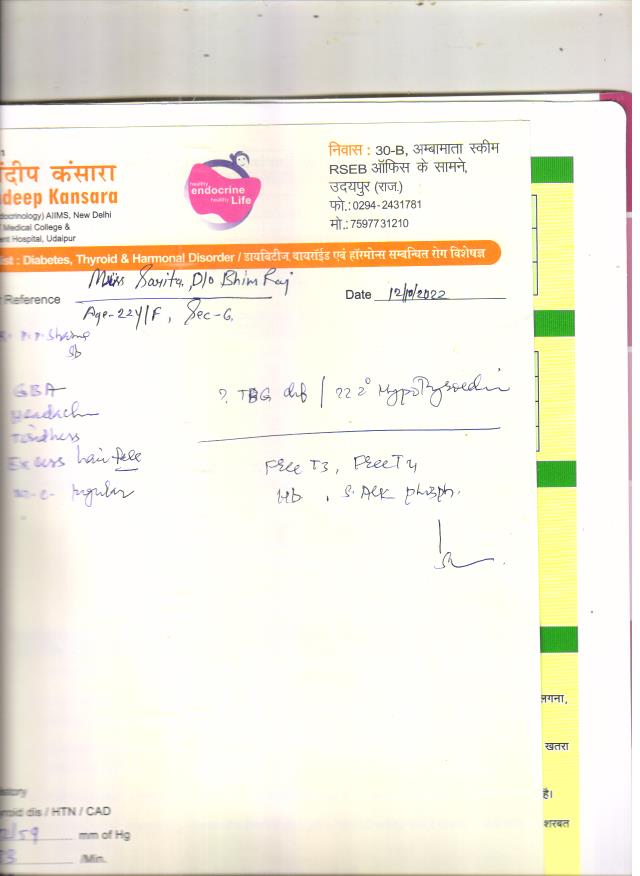 ंदीप कंसारा
deep Kansara
docrinology) AIIMS, New Delhi
Medical College &
ent Hospital, Udaipur
healthy
endocrine
healthy Life
निवास : 30-B, अम्बामाता स्कीम
RSEB ऑफिस के सामने,
उदयपुर (राज.)
फो.:0294-2431781
मो.:7597731210
ist : Diabetes, Thyroid & Harmonal Disorder / डायबिटीज, थायरॉईड एवं हॉरमोन्स सम्बन्धित रोग विशेषज्ञ
Miss Sarita D/o Bhim Raj
Reference
Date 12/10/2022
Age-22Y/F, Sec-6
Sharma
Sb
GBA
Headach
Tiredness
Excess hair fall
regular
? TBG def / ?? 2° Hypothyroidism
Free T3, Free T4
Hb , S. Alk phosph.
story
roid dis / HTN / CAD
/59 mm of Hg
/Min.
लगना,
खतरा
है।
शरबत